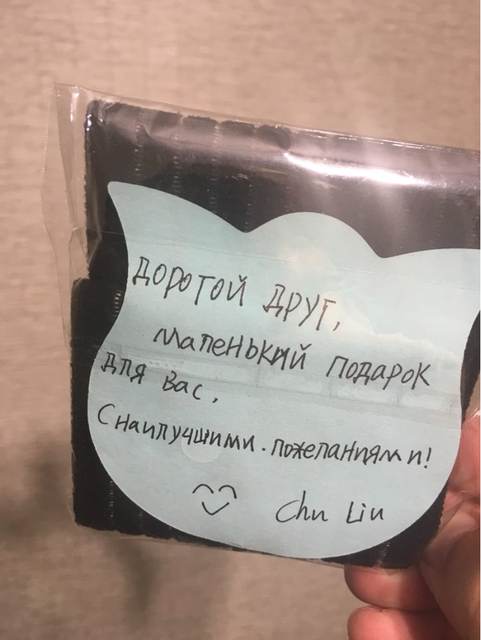 дорогой друг,
маленький подарок
для вас,
С наилучшими.пожеланиями!
Chu Liu